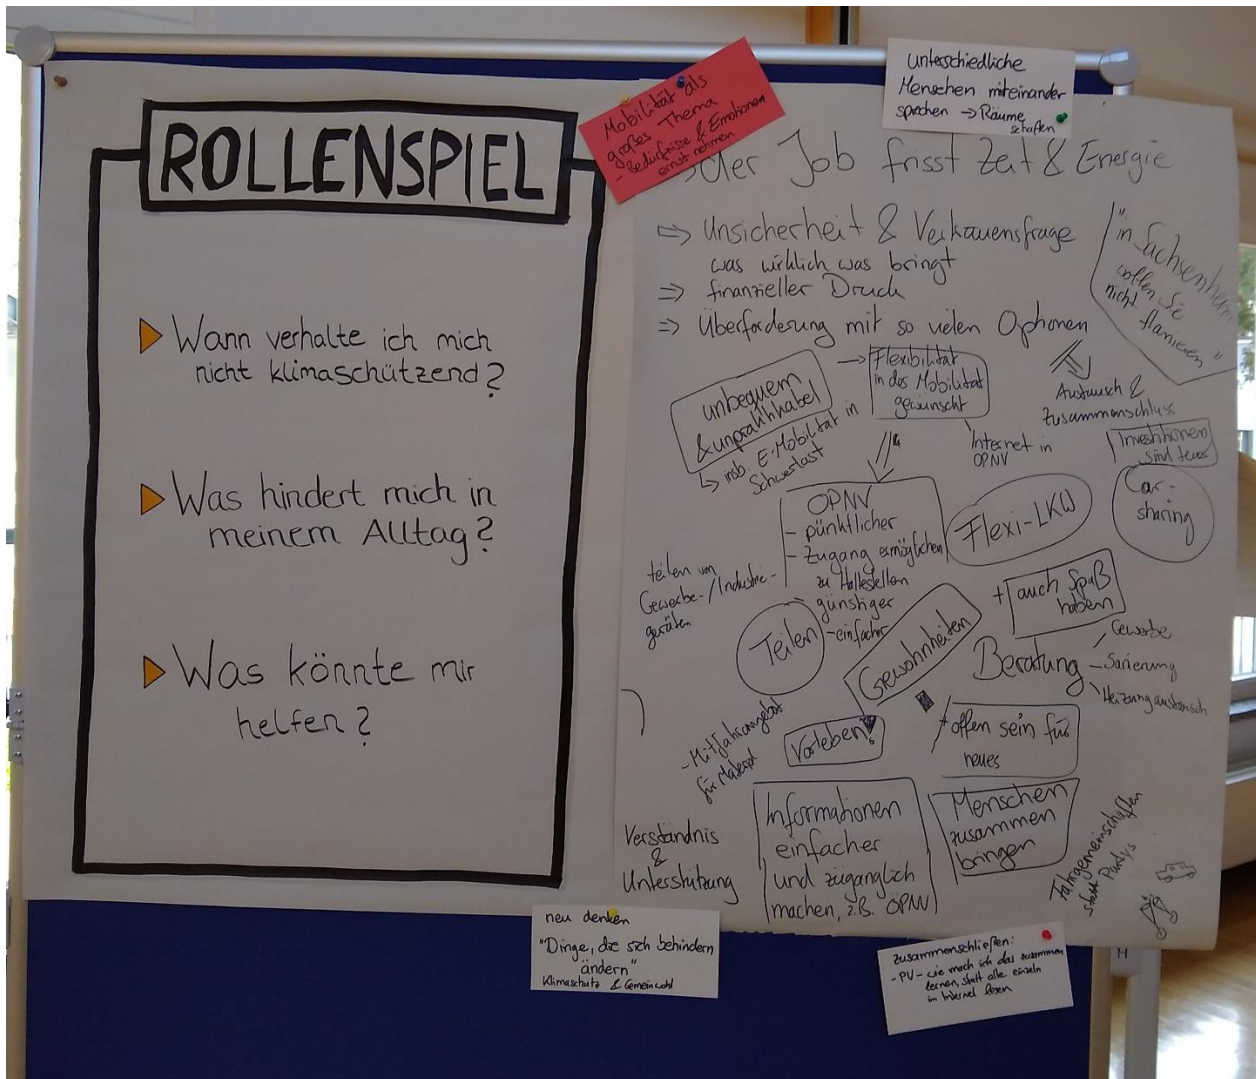 ROLLENSPIEL
Wann verhalte ich mich
nicht klimaschützend?
Was hindert mich in
meinem Alltag?
Was könnte mir
helfen?
Mobilität als
großes Thema
- Bedürfnisse & Emotionen
ernst nehmen
unterschiedliche
Menschen miteinander
sprechen → Räume
schaffen
der Job frisst Zeit & Energie
⇒ Unsicherheit & Vertrauensfrage
was wirklich was bringt
⇒ finanzieller Druck
⇒ Überforderung mit so vielen Optionen
"in Sachsenheim
wollen Sie
nicht flanieren"
Austausch &
Zusammenschluss
unbequem
& unpraktikabel
↳ insb. E-Mobilität in
Schwerlast
→ Flexibilität
in der Mobilität
gewünscht
Internet in
ÖPNV
Investitionen
sind teuer
Car-
sharing
ÖPNV
- pünktlicher
- Zugang ermöglichen
zu Haltestellen
- günstiger
- einfacher
Flexi-LKW
teilen von
Gewerbe-/Industrie-
geräten
Teilen
Gewohnheiten
+ auch Spaß
haben
Beratung
Gewerbe
Sanierung
Heizungsaustausch
- Mitfahrangebot
für Material
Vorleben!
+ offen sein für
neues
Verständnis
&
Unterstützung
Informationen
einfacher
und zugänglich
machen, z.B. ÖPNV
Menschen
zusammen
bringen
Fahrgemeinschaften
statt
neu denken
"Dinge, die sich behindern
ändern"
Klimaschutz & Gemeinwohl
zusammenschließen:
- PV - wie mach ich das zusammen
lernen, statt alle einzeln
im Internet lesen